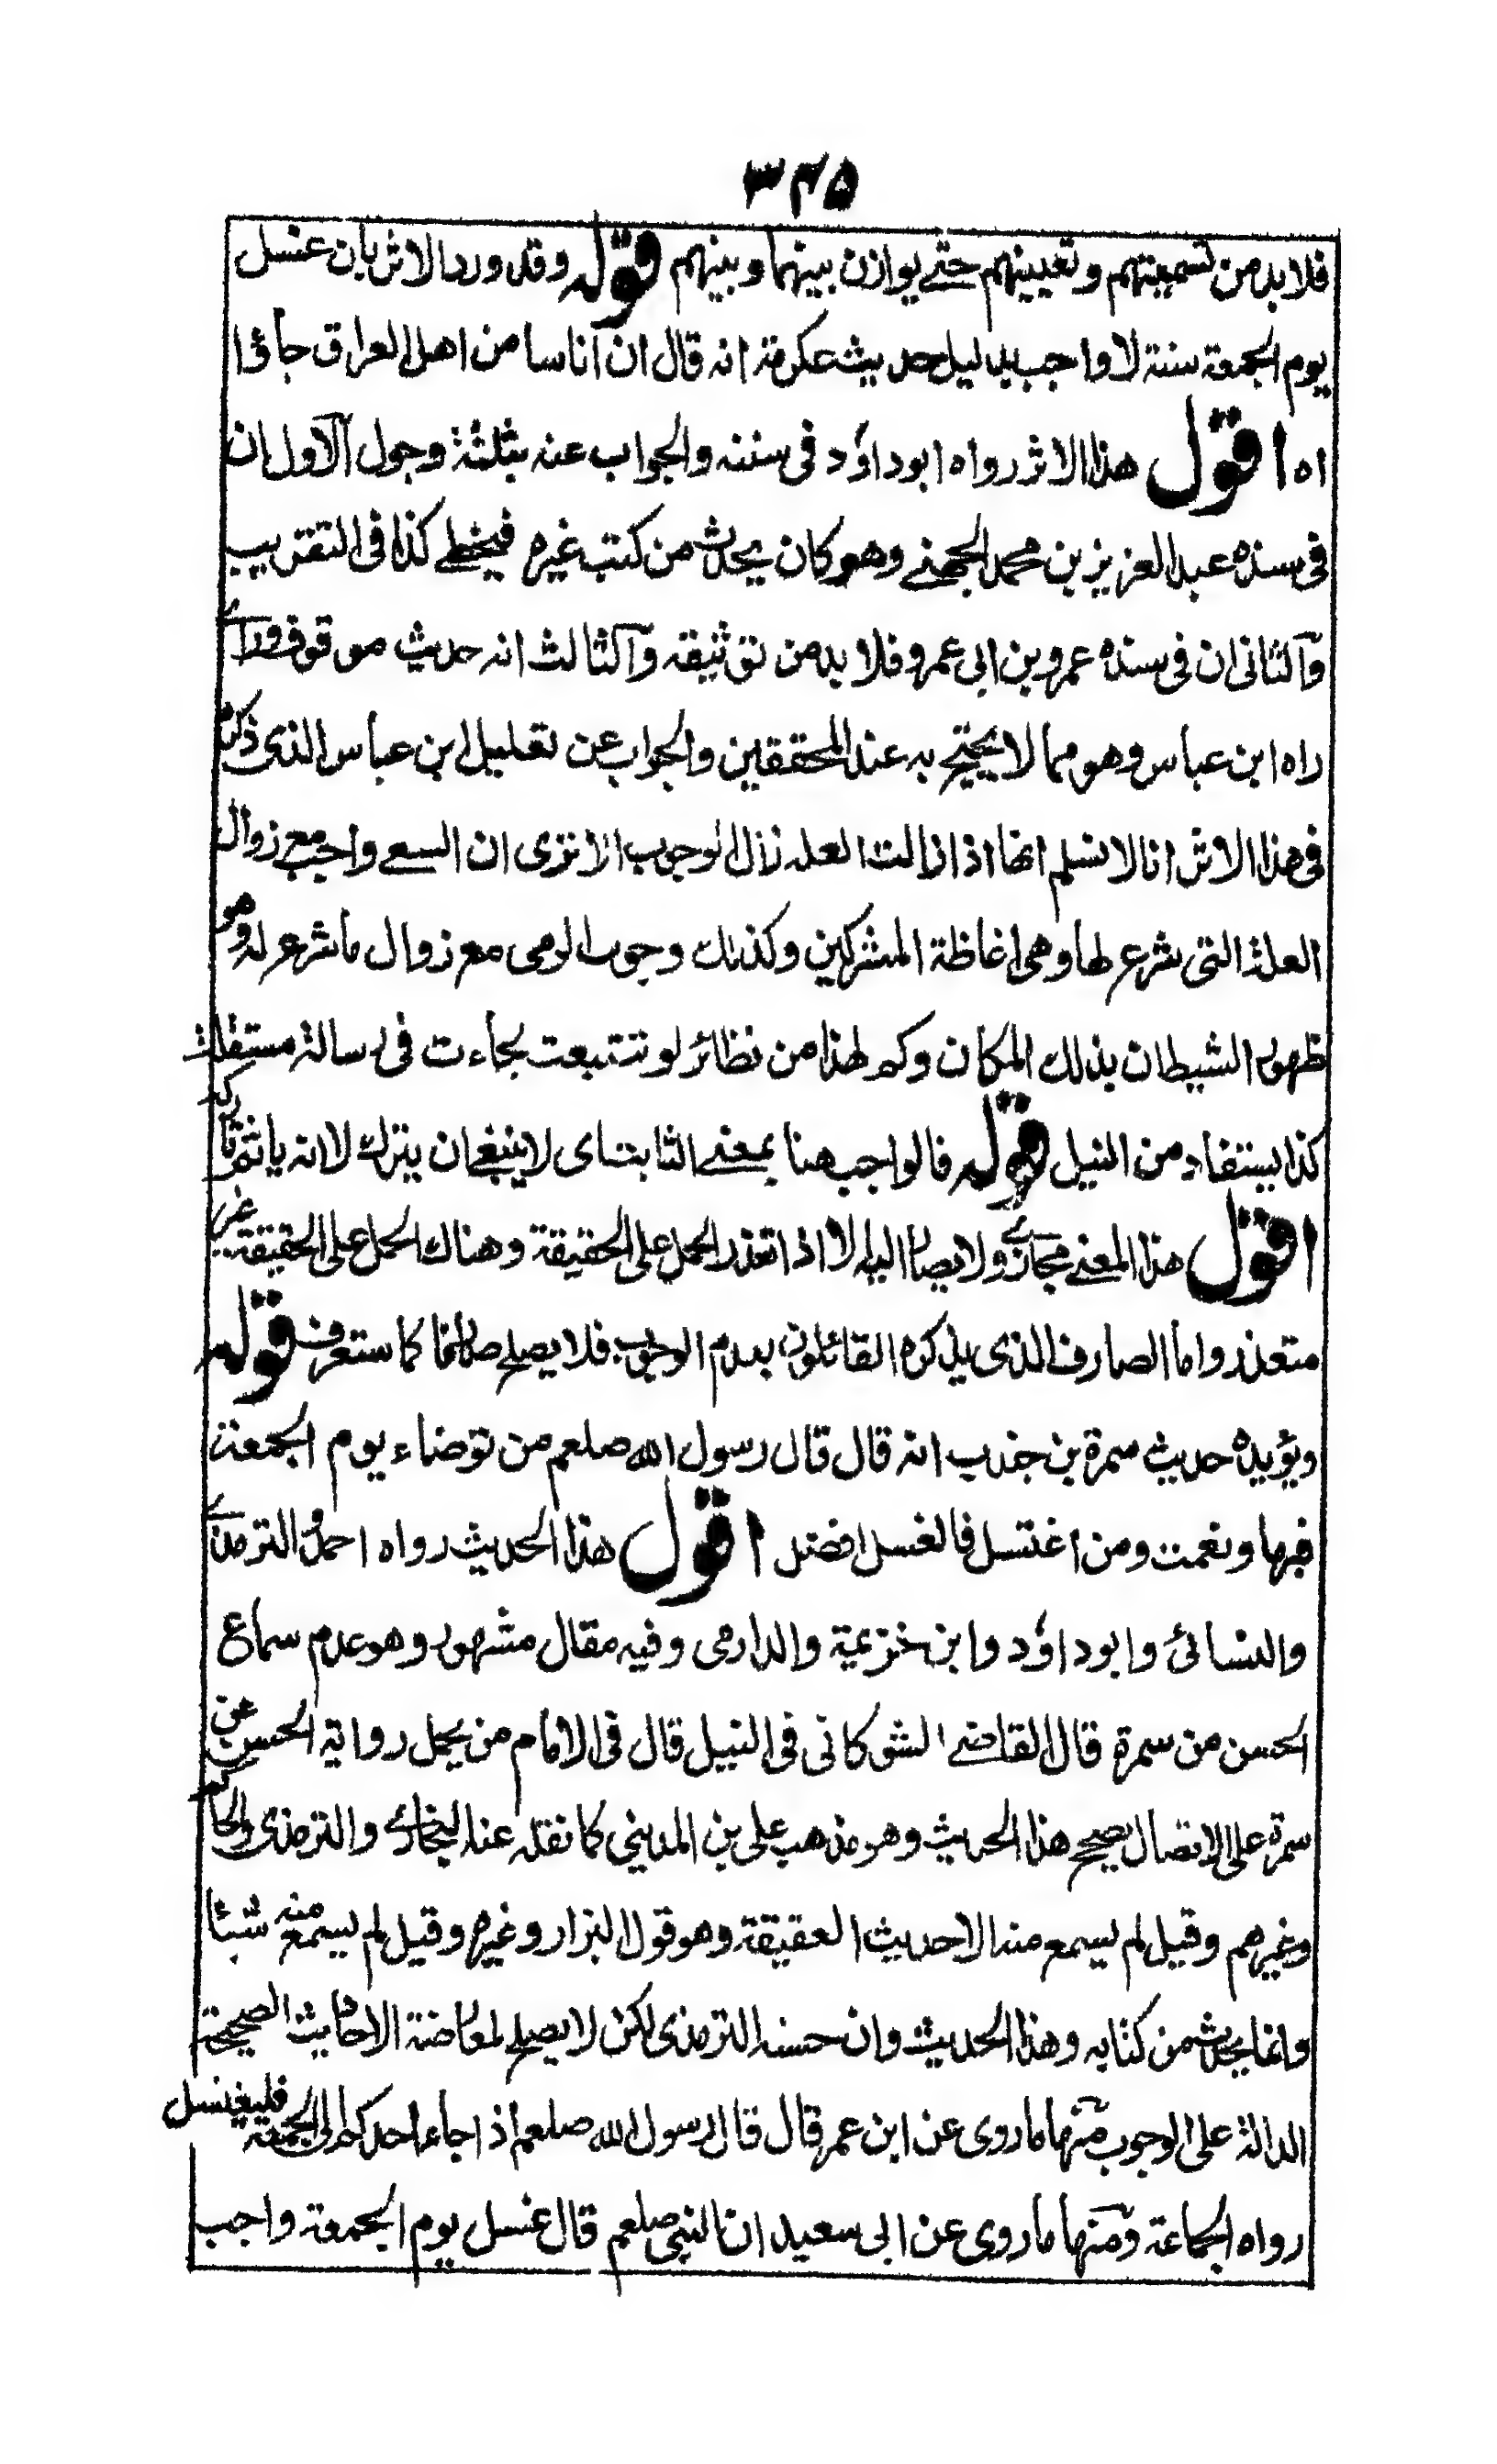 ۳۴۵
فلا بد من تسميتهم وتعيينهم حتے يوازن بينهما وبينهم قوله وقد ورد الاثر بان غسل
يوم الجمعة سنة لا واجب بدليل حديث عكرمة انه قال ان اناسا من اهل العراق جاؤا
اه اقول هذا الاثر رواه ابو داؤد فى سننه والجواب عنه بثلثة وجوه الاول ان
فى سنده عبد العزيز بن محمد الجهنے وهو كان يحدث من كتب غيره فيخطے كذا فى التقريب
والثانى ان فى سنده عمرو بن ابى عمرو فلا بد من توثيقه والثالث انه حديث موقوف وراے
راه ابن عباس وهو مما لا يحتج به عند المحققين والجواب عن تعليل ابن عباس الذى ذكره
فى هذا الاثر انا لا نسلم انها اذا زالت العلة زال الوجوب الا ترى ان السعے واجب مع زوال
العلة التى شرع لها وهى اغاظة المشركين وكذلك وجوب الرمى مع زوال ما شرع له وهو
ظهور الشيطان بذلك المكان وكم لهذا من نظائر لو تتبعت لجاءت فى رسالة مستقلة
كذا يستفاد من النيل قوله فالواجب هنا بمعنے الثابت اى لا ينبغے ان يترك لا انه ياثم تاركه
اقول هذا المعنے مجازے ولا يصار اليه الا اذا تعذر الحمل على الحقيقة وهناك الحمل على الحقيقة غير
متعذر واما الصارف الذى يذكره القائلون بعدم الوجوب فلا يصلح صارفا كما ستعرف قوله
ويؤيده حديث سمرة بن جندب انه قال قال رسول الله صلعم من توضاء يوم الجمعة
فبها ونعمت ومن اغتسل فالغسل افضل اقول هذا الحديث رواه احمد والترمذے
والنسائى وابو داؤد وابن خزيمة والدارمى وفيه مقال مشهور وهو عدم سماع
الحسن من سمرة قال القاضے الشوكانى فى النيل قال فى الامام من يحمل رواية الحسن عن
سمرة على الاتصال يصحح هذا الحديث وهو مذهب على بن المدينى كما نقله عنه البخارے والترمذى والحاكم
وغيرهم وقيل لم يسمع منه الا حديث العقيقة وهو قول البزار وغيره وقيل لم يسمع منه شيئا
وانما يحدث من كتابه وهذا الحديث وان حسنه الترمذى لكن لا يصلح لمعارضة الاحاديث الصحيحة
الدالة على الوجوب منها ما روى عن ابن عمر قال قال رسول الله صلعم اذا جاء احدكم الى الجمعة فليغتسل
رواه الجماعة ومنها ما روى عن ابى سعيد ان النبى صلعم قال غسل يوم الجمعة واجب